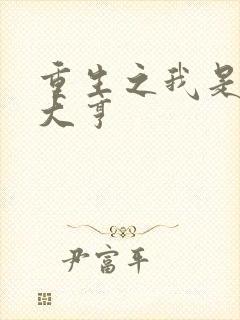 重生之我是
大亨
尹富平